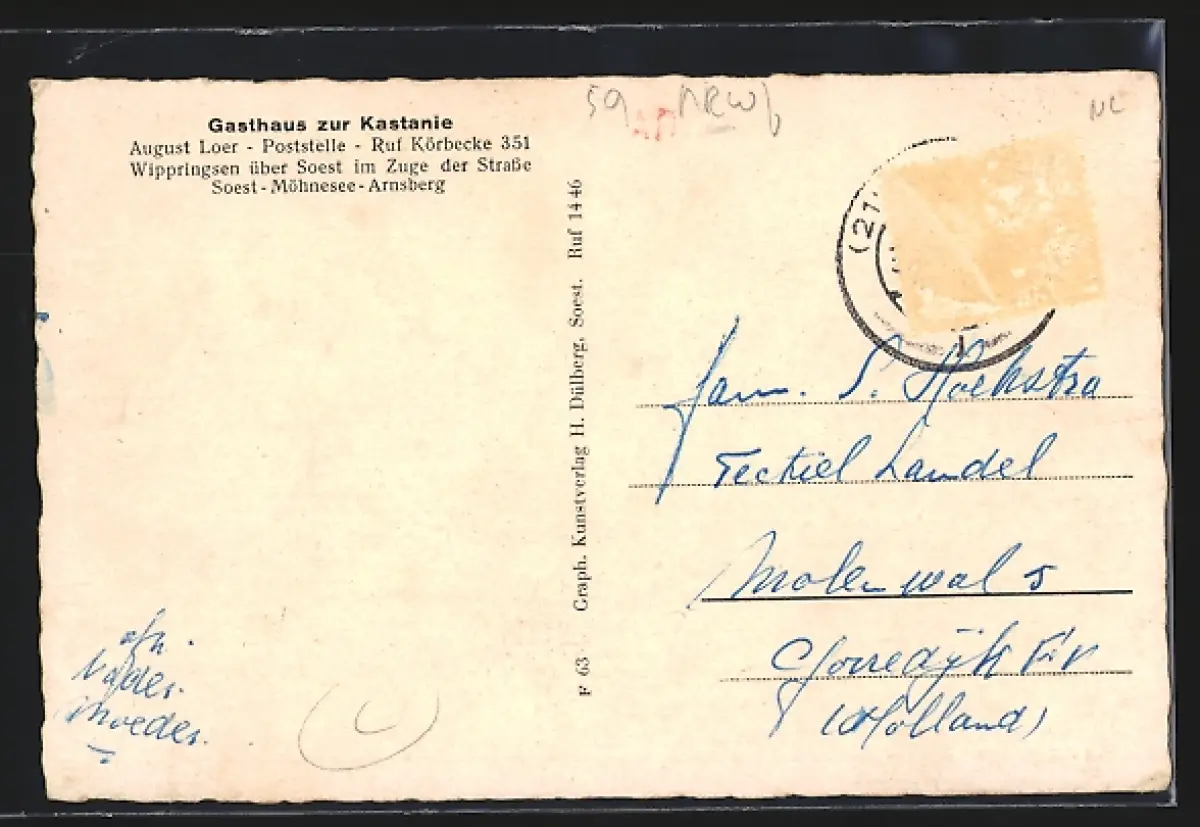 Gasthaus zur Kastanie
August Loer - Poststelle - Ruf Körbecke 351
Wippringsen über Soest im Zuge der Straße
Soest - Möhnesee - Arnsberg
afz.
Vader
Moeder.
F 63 Graph. Kunstverlag H. Dülberg, Soest. Ruf 1446
59 NRW
NL
(21
Fam. S. Hoekstra
Textiel handel
Molenwal 5
Gorredijk Fr
(Holland)